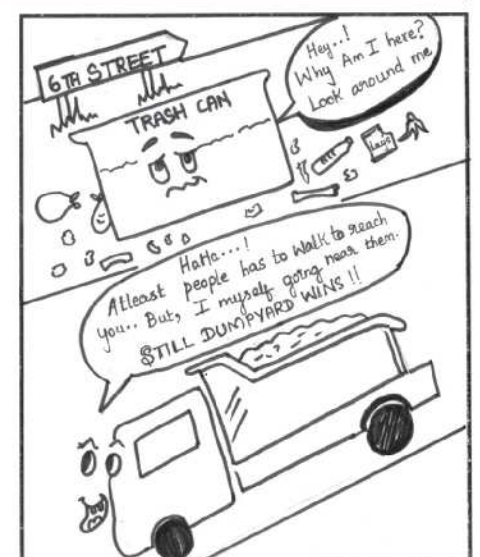 6TH STREET
TRASH CAN
Hey..!
Why Am I here?
Look around me
Lays
HaHa...!
Atleast people has to walk to reach
you.. But, I myself going near them.
STILL DUMPYARD WINS !!